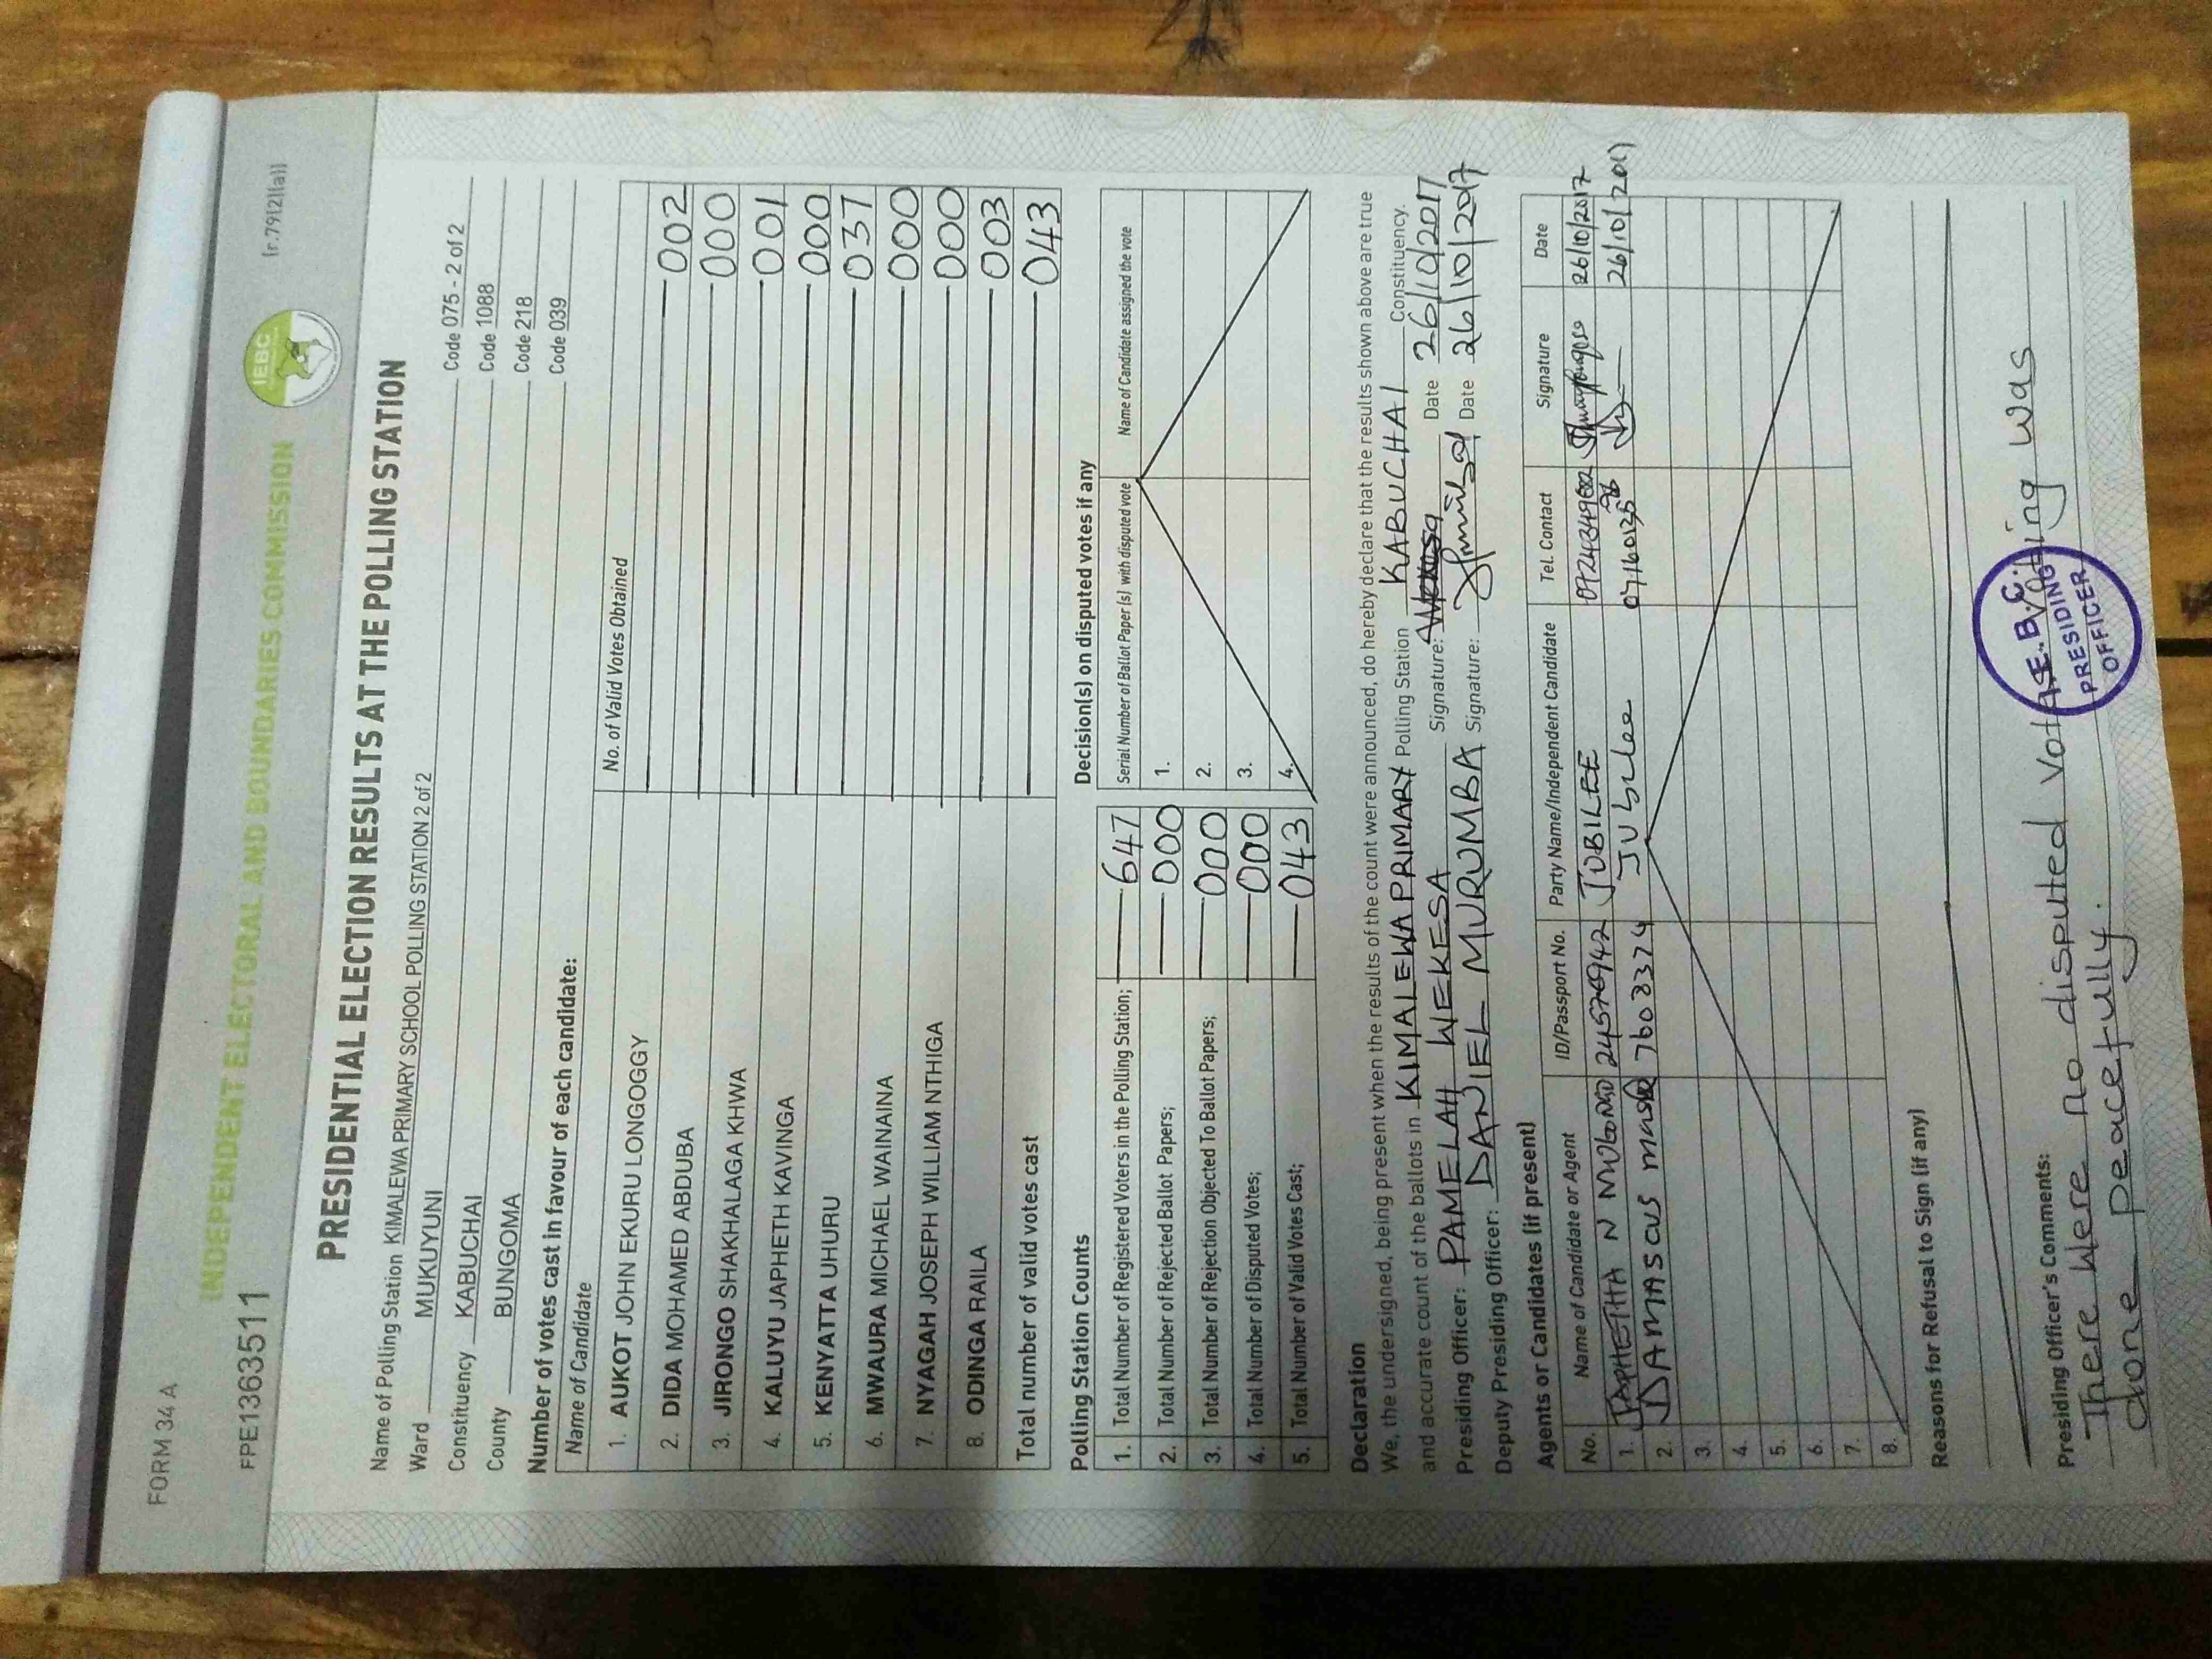 FORM 34A
(r.79(2)(a))
INDEPENDENT ELECTORAL AND BOUNDARIES COMMISSION
IEBC
FPE1363511
PRESIDENTIAL ELECTION RESULTS AT THE POLLING STATION
Name of Polling Station KIMALEWA PRIMARY SCHOOL POLLING STATION 2 of 2 Code 075 - 2 of 2
Ward MUKUYUNI Code 1088
Constituency KABUCHAI Code 218
County BUNGOMA Code 039
Number of votes cast in favour of each candidate:
Name of Candidate No. of Valid Votes Obtained
1. AUKOT JOHN EKURU LONGOGGY 002
2. DIDA MOHAMED ABDUBA 000
3. JIRONGO SHAKHALAGA KHWA 001
4. KALUYU JAPHETH KAVINGA 000
5. KENYATTA UHURU 037
6. MWAURA MICHAEL WAINAINA 000
7. NYAGAH JOSEPH WILLIAM NTHIGA 000
8. ODINGA RAILA 003
Total number of valid votes cast 043
Polling Station Counts
1. Total Number of Registered Voters in the Polling Station; 647
2. Total Number of Rejected Ballot Papers; 000
3. Total Number of Rejection Objected To Ballot Papers; 000
4. Total Number of Disputed Votes; 000
5. Total Number of Valid Votes Cast; 043
Decision(s) on disputed votes if any
Serial Number of Ballot Paper (s) with disputed vote Name of Candidate assigned the vote
1.
2.
3.
4.
Declaration
We, the undersigned, being present when the results of the count were announced, do hereby declare that the results shown above are true
and accurate count of the ballots in KIMALEWA PRIMARY Polling Station KABUCHAI Constituency.
Presiding Officer: PAMELAH WEKESA Signature: Date 26/10/2017
Deputy Presiding Officer: DANIEL MURUMBA Signature: Date 26/10/2017
Agents or Candidates (if present)
No. Name of Candidate or Agent ID/Passport No. Party Name/Independent Candidate Tel. Contact Signature Date
1. JAPHETHA N 24576942 JUBILEE 26/10/2017
2. DAMASCUS 7603374 Jubilee 26/10/2017
3.
4.
5.
6.
7.
8.
Reasons for Refusal to Sign (if any)
Presiding Officer's Comments:
There were no disputed votes. Voting was
done peacefully.
I.E.B.C.
PRESIDING
OFFICER